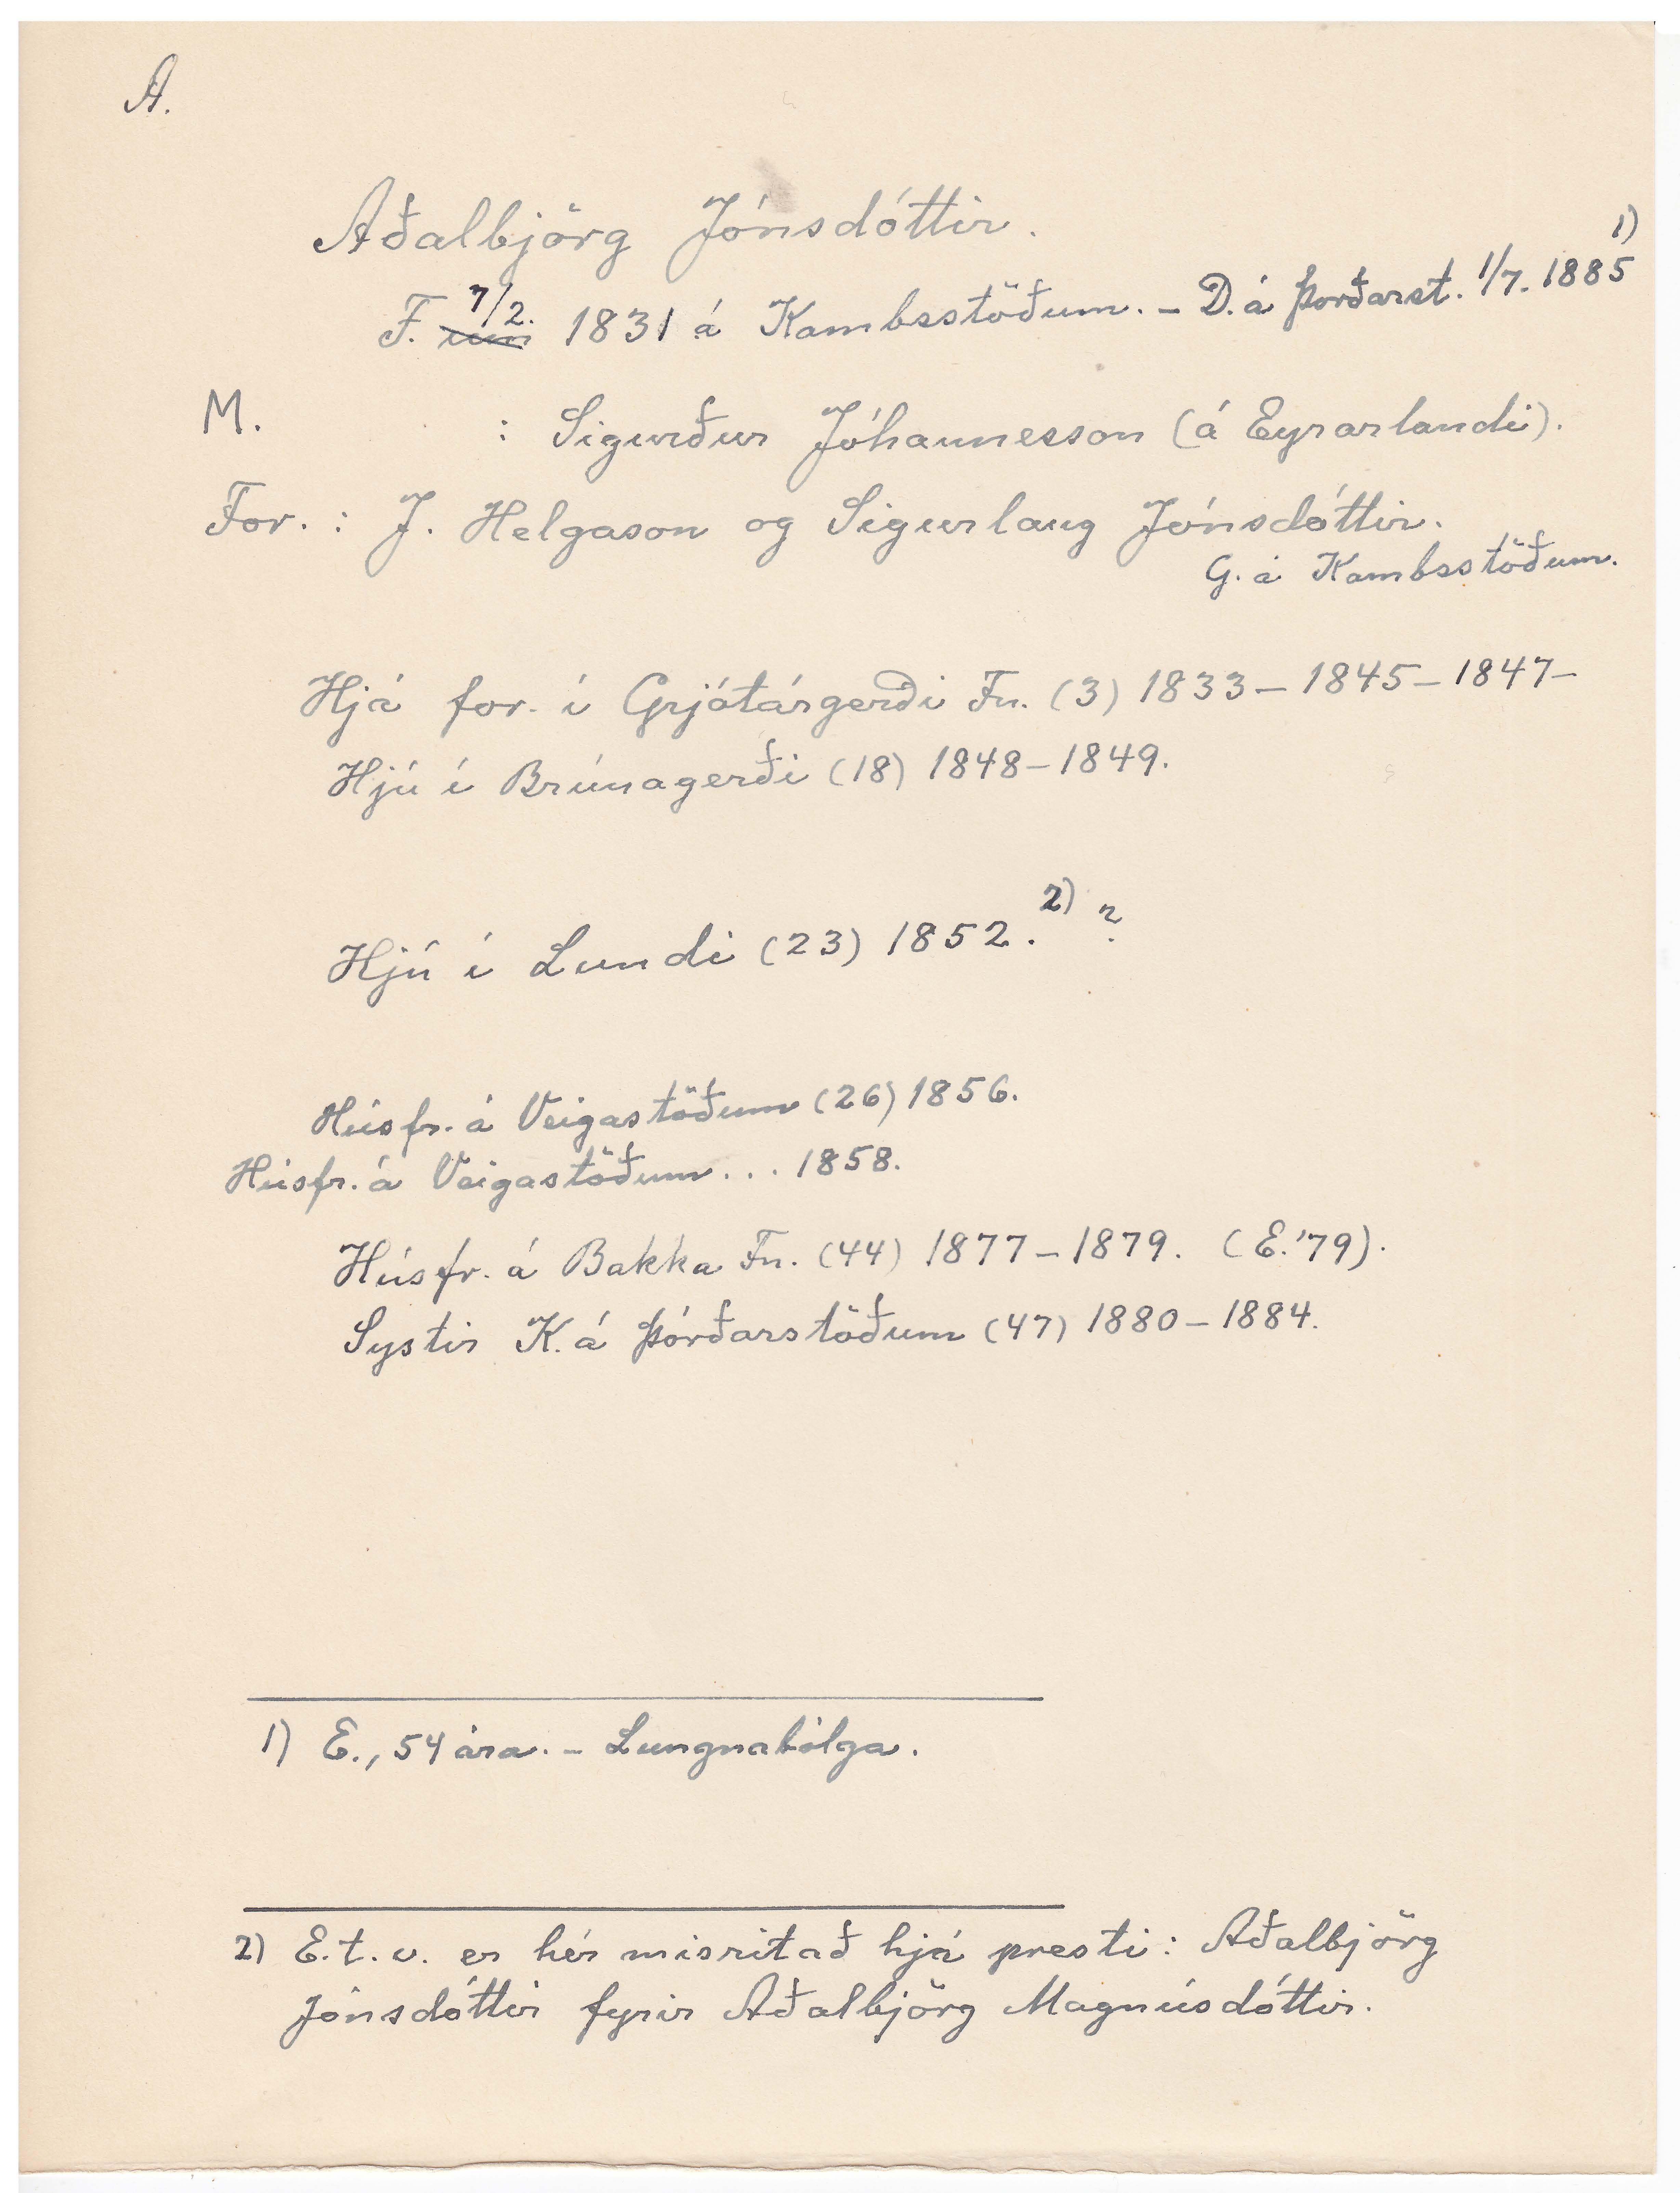 A.
Aðalbjörg Jónsdóttir.
F. ~~um~~ 7/2. 1831 á Kambsstöðum. – D. á Þorðarst. 1/7. 1885 1)
M. : Sigurður Jóhannesson (á Eyrarlandi).
For. : J. Helgason og Sigurlaug Jónsdóttir.
G. á Kambsstöðum.
Hjá for. í Grjótárgerði Fn. (3) 1833 – 1845 – 1847 –
Hjú í Brúnagerði (18) 1848 – 1849.
Hjú í Lundi (23) 1852. 2) ?
Húsfr. á Veigastöðum (26) 1856.
Húsfr. á Veigastöðum ... 1858.
Húsfr. á Bakka Fn. (44) 1877 – 1879. (E. '79).
Systir K. á Þórðarstöðum (47) 1880 – 1884.
1) E., 54 ára. – Lungnabólga.
2) E. t. v. er hér misritað hjá presti: Aðalbjörg
Jónsdóttir fyrir Aðalbjörg Magnúsdóttir.